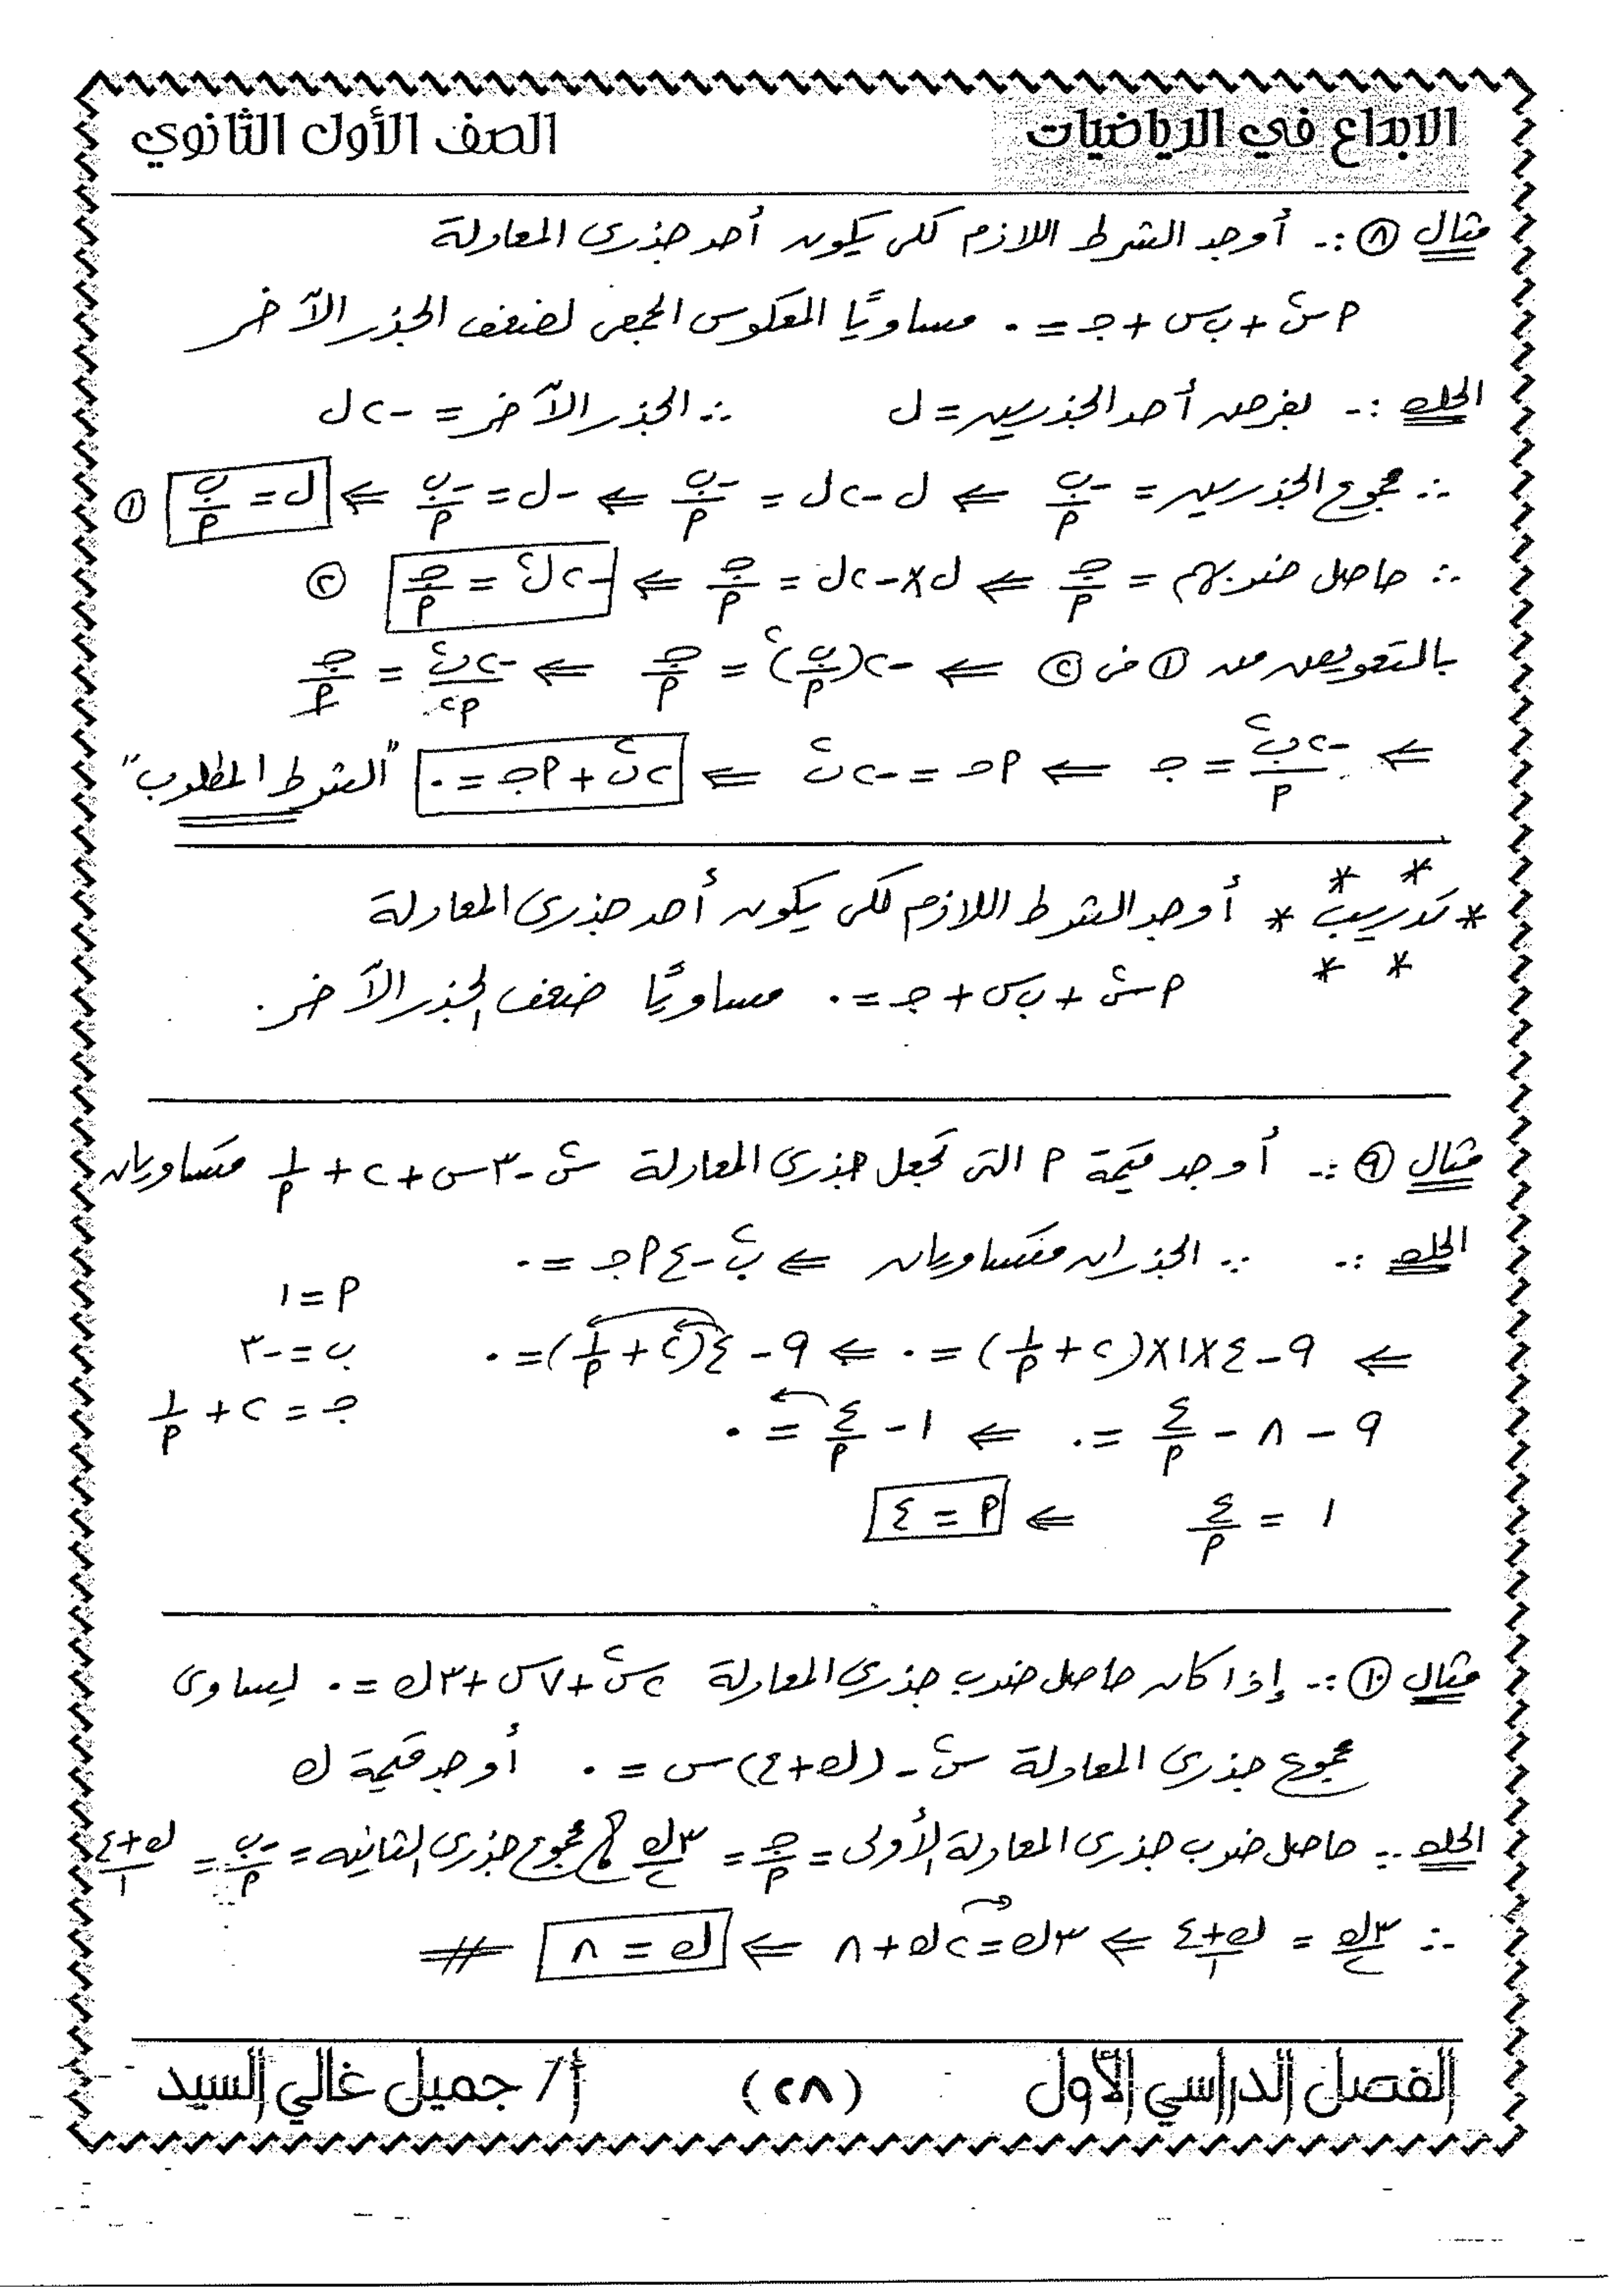 الابداع في الرياضيات
الصف الأول الثانوي
مثال ٨ :- أوجد الشرط اللازم لكى يكون أحد جذرى المعادلة
أس² + ب س + جـ = ٠ مساويًا المعكوس الجمعى لضعف الجذر الآخر
الحل :- بفرض أحد الجذرين = ل ∴ الجذر الآخر = -٢ل
∴ مجموع الجذرين = -ب/أ ⇐ ل - ٢ل = -ب/أ ⇐ -ل = -ب/أ ⇐ ل = ب/أ ①
∴ حاصل ضربهم = جـ/أ ⇐ ل × -٢ل = جـ/أ ⇐ -٢ل² = جـ/أ ②
بالتعويض من ① فى ② ⇐ -٢(ب/أ)² = جـ/أ ⇐ -٢ب²/أ² = جـ/أ
⇐ -٢ب²/أ = جـ ⇐ أجـ = -٢ب² ⇐ ٢ب² + أجـ = ٠ "الشرط المطلوب"
* تدريب * أوجد الشرط اللازم لكى يكون أحد جذرى المعادلة
أس² + ب س + جـ = ٠ مساويًا ضعف الجذر الآخر.
مثال ٩ :- أوجد قيمة أ التى تجعل جذرى المعادلة س² - ٣س + ٢ + ١/أ متساويان
الحل :- ∵ الجذران متساويان ⇐ ب² - ٤أجـ = ٠
أ = ١
⇐ ٩ - ٤×١×(٢ + ١/أ) = ٠ ⇐ ٩ - ٤(٢ + ١/أ) = ٠
ب = -٣
٩ - ٨ - ٤/أ = ٠ ⇐ ١ - ٤/أ = ٠
جـ = ٢ + ١/أ
١ = ٤/أ ⇐ أ = ٤
مثال ١٠ :- إذا كان حاصل ضرب جذرى المعادلة ٢س² + ٧س + ٣ك = ٠ يساوى
مجموع جذرى المعادلة س² - (ك+٤)س = ٠ أوجد قيمة ك
الحل :- حاصل ضرب جذرى المعادلة الأولى = جـ/أ = ٣ك/٢ ، مجموع جذرى الثانية = -ب/أ = ك+٤/١
∴ ٣ك/٢ = ك+٤/١ ⇐ ٣ك = ٢ك + ٨ ⇐ ك = ٨ #
الفصل الدراسي الأول
(٢٨)
أ/ جميل غالي السيد